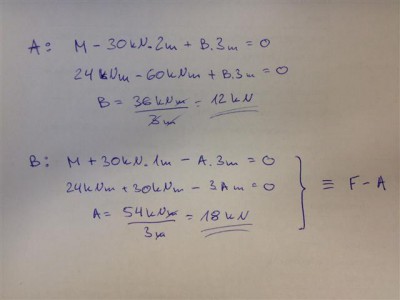 A: M - 30kN.2m + B.3m = 0
24kNm - 60kNm + B.3m = 0
B = 36kNm / 3m = 12kN
B: M + 30kN.1m - A.3m = 0
24kNm + 30kNm - 3Am = 0 ≡ F - A
A = 54kNm / 3m = 18kN